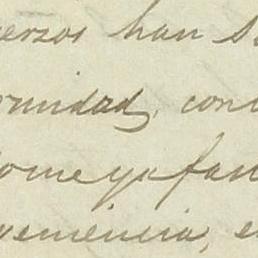 erzos han s
unidad, con
ome ya fa
veniencia, e